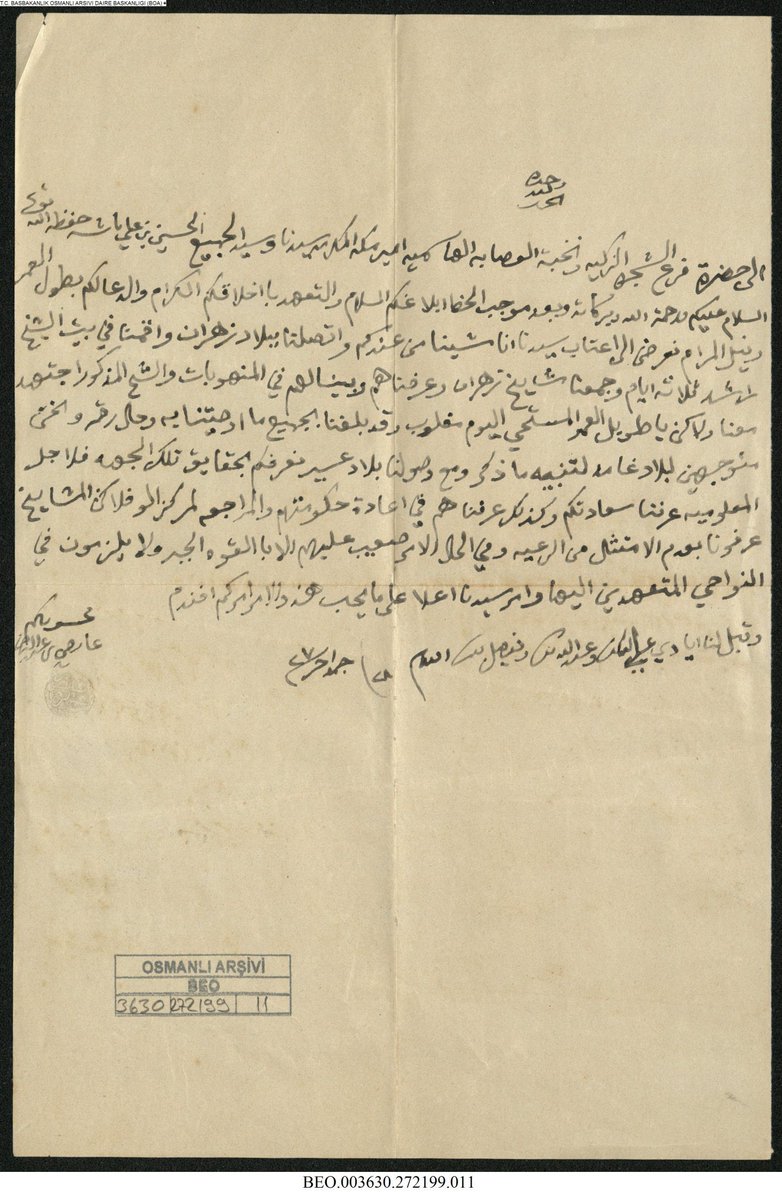 T.C. BASBAKANLIK OSMANLI ARSIVI DAIRE BASKANLIGI (BOA)
الحمد لله وحده
الى حضرة فرع الشجره الزكيه ونخبة العصابه الهاشميه امير مكة المكرمه سيدنا وسيد الجميع الحسين بن علي باشه حفظه الله تعالى
السلام عليكم ورحمة الله وبركاته وبعد موجب الخط ابلاغكم السلام والتعهد باخلاقكم الكرام والدعا لكم بطول العمر
ونيل المرام نعرض الى اعتاب سيدنا انا مشينا من عندكم واتصلنا ببلاد زهران واقمنا في بيت الشيخ
راشد ثلاثة ايام وجمعنا مشايخ زهران وعرفناهم وبينا لهم في المنهوبات والشيخ المذكور اجتهد
معنا ولاكن يا طويل العمر المستحي اليوم مغلوب وقد بلغنا الجميع ما اوصيتنا به وحال رقمه ونحن
متوجهين لبلاد غامد لتنبيه ما ذكر ومع وصولنا بلاد عسير نعرفكم بحقايق تلك الجهه فلاجل
المعلوميه عرفنا سعادتكم وكذلك عرفناهم في اعادة حكومتهم والمراجعه لمركز المو فلاكن المشايخ
عرفونا بعدم الامتثال من الرعيه وفي الحال الامر صعيب عليهم الا بالقوه الجبر ولا يلزمون في
النواحي المتعهدين اليها وامر سيدنا اعلا على ما يجب هذا والامر امركم افندم
وقبل لنا ايادي علي بك وعبدالله بك وفيصل بك والسلام جماد اخر ٢٧
محسوبكم
عايض بن
OSMANLI ARŞİVİ
BEO
3630 272199 11
BEO.003630.272199.011